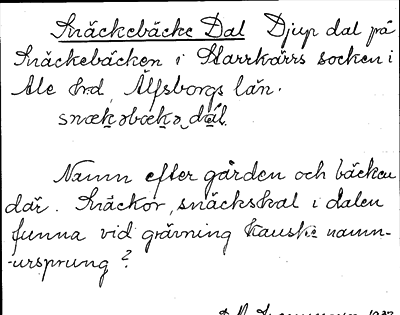 Snäckebäcke Dal Djup dal på
Snäckebäcken i Starrkärrs socken i
Ale hrd, Älfsborgs län.
snækəbækə dal.
Namn efter gården och bäcken
där. Snäckor, snäckskal i dalen
funna vid grävning kanske namn-
-ursprung?